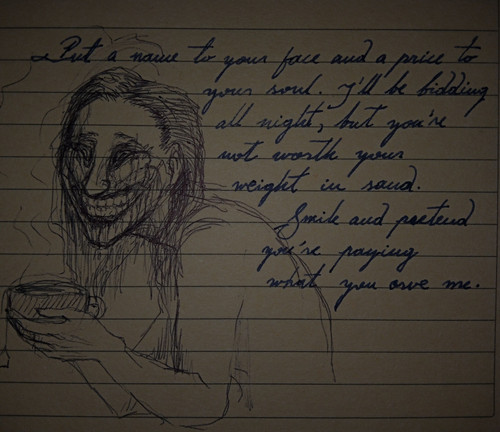 Put a name to your face and a price to
your soul. I'll be bidding
all night, but you're
not worth your
weight in sand.
Smile and pretend
you're paying
what you owe me.